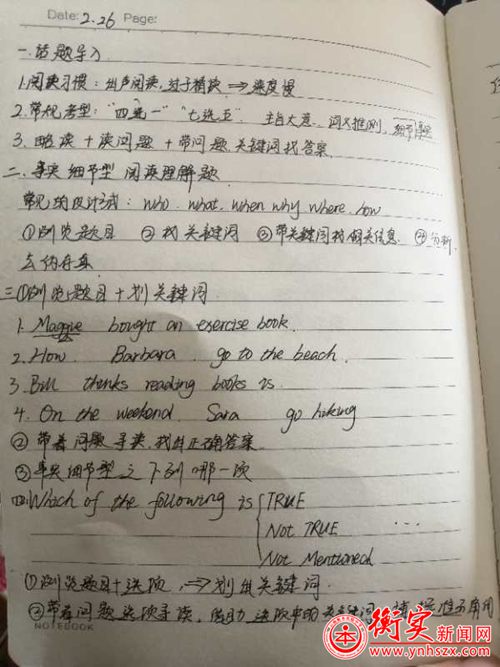 Date: 2.26 Page:
一.话题导入
1.阅读习惯：出声阅读，过于精读 ⇒ 速度慢
2.常规考型："四选一" "七选五" 主旨大意、词义推测、细节事实
3.略读+读问题+带问题、关键词找答案
二.事实细节型 阅读理解题
常见的设计形式：who. what. when why where. how
①浏览题目 ②找关键词 ③带关键词找相关信息. ④分析、
去伪存真
三①浏览题目+划关键词
1. Maggie bought an exercise book.
2. How. Barbara. go to the beach.
3. Bill thinks reading books is.
4. On the weekend Sara go hiking
②带着问题寻读，找出正确答案
③事实细节型之下列哪一项
四.Which of the following is { TRUE
Not TRUE ...
Not Mentioned
①浏览题目+选项，⇒划组关键词.
②带着问题选项寻读，借助选项中的关键词
NOTEBOOK
衡实新闻网
www.ynhszx.com